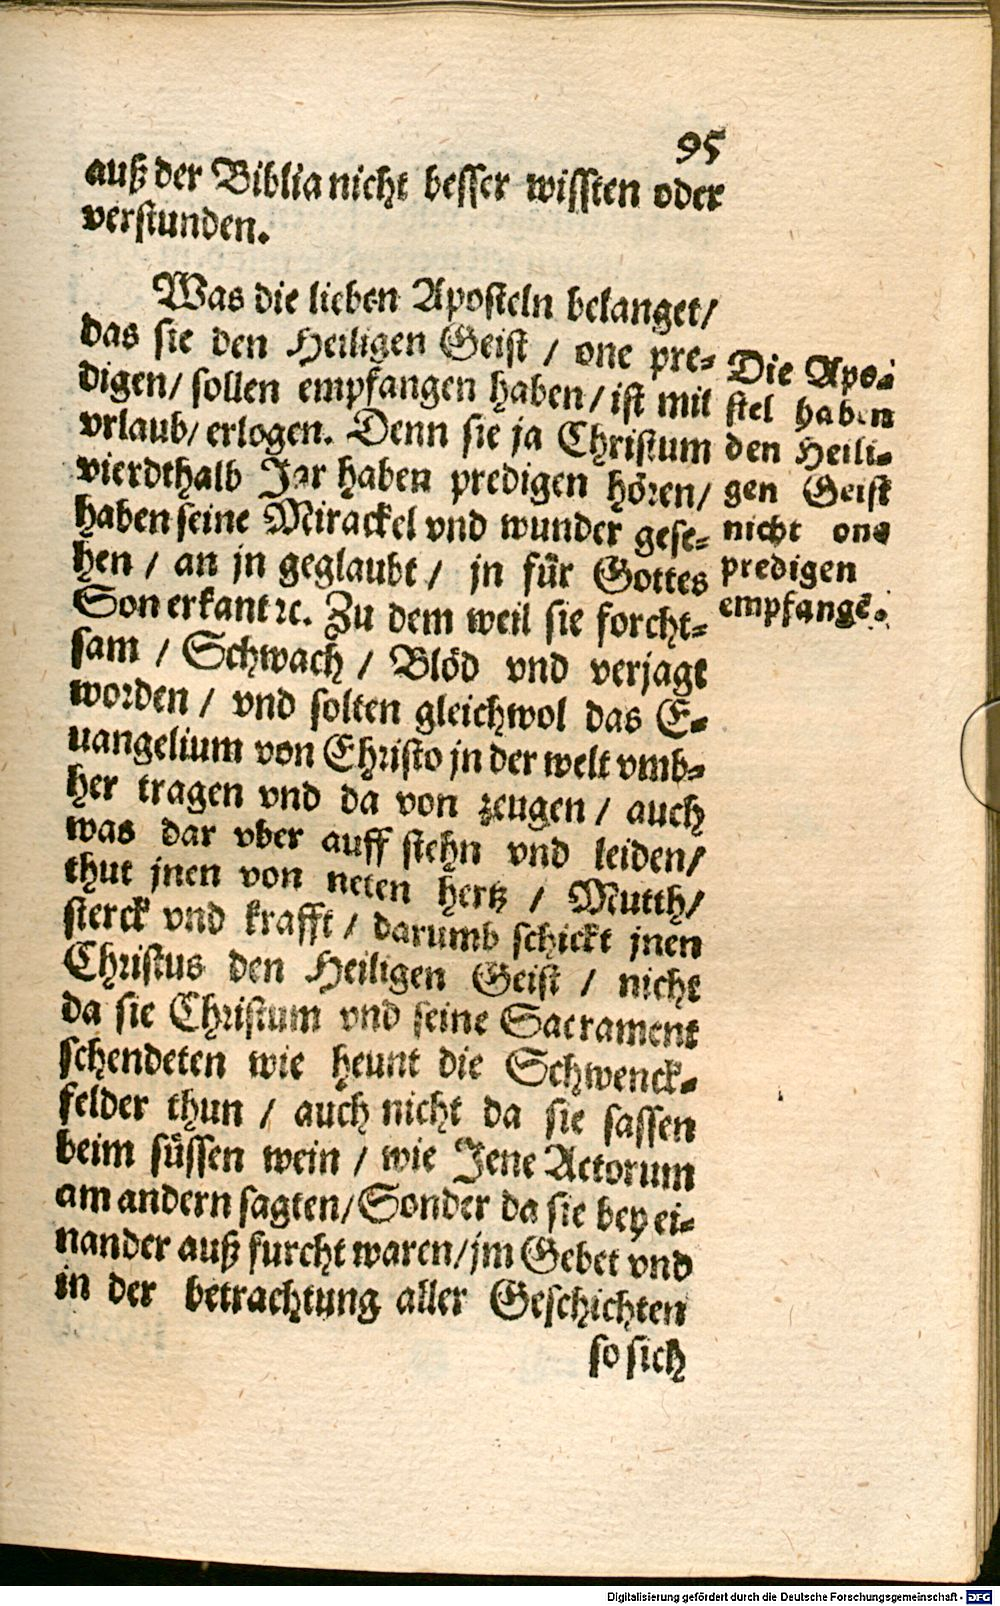 95
auß der Biblia nicht besser wissten oder
verstunden.
Was die lieben Aposteln belanget/
das sie den Heiligen Geist / one pre-
digen/ sollen empfangen haben/ ist mit
vrlaub/ erlogen. Denn sie ja Christum
vierdthalb Jar haben predigen hören/
haben seine Mirackel vnd wunder gese-
hen / an jn geglaubt / jn für Gottes
Son erkant ꝛc. Zu dem weil sie forcht-
sam / Schwach / Blöd vnd verjagt
worden / vnd solten gleichwol das E-
uangelium von Christo jn der welt vmb-
her tragen vnd da von zeugen / auch
was dar vber auff stehn vnd leiden/
thut jnen von neten hertz / Mutth/
sterck vnd krafft / darumb schickt jnen
Christus den Heiligen Geist / nicht
da sie Christum vnd seine Sacrament
schendeten wie heunt die Schwenck-
felder thun / auch nicht da sie sassen
beim süssen wein / wie Jene Actorum
am andern sagten/ Sonder da sie bey ei-
nander auß furcht waren/ jm Gebet vnd
in der betrachtung aller Geschichten
so sich
Die Apo-
stel haben
den Heili-
gen Geist
nicht one
predigen
empfangē.
Digitalisierung gefördert durch die Deutsche Forschungsgemeinschaft - DFG